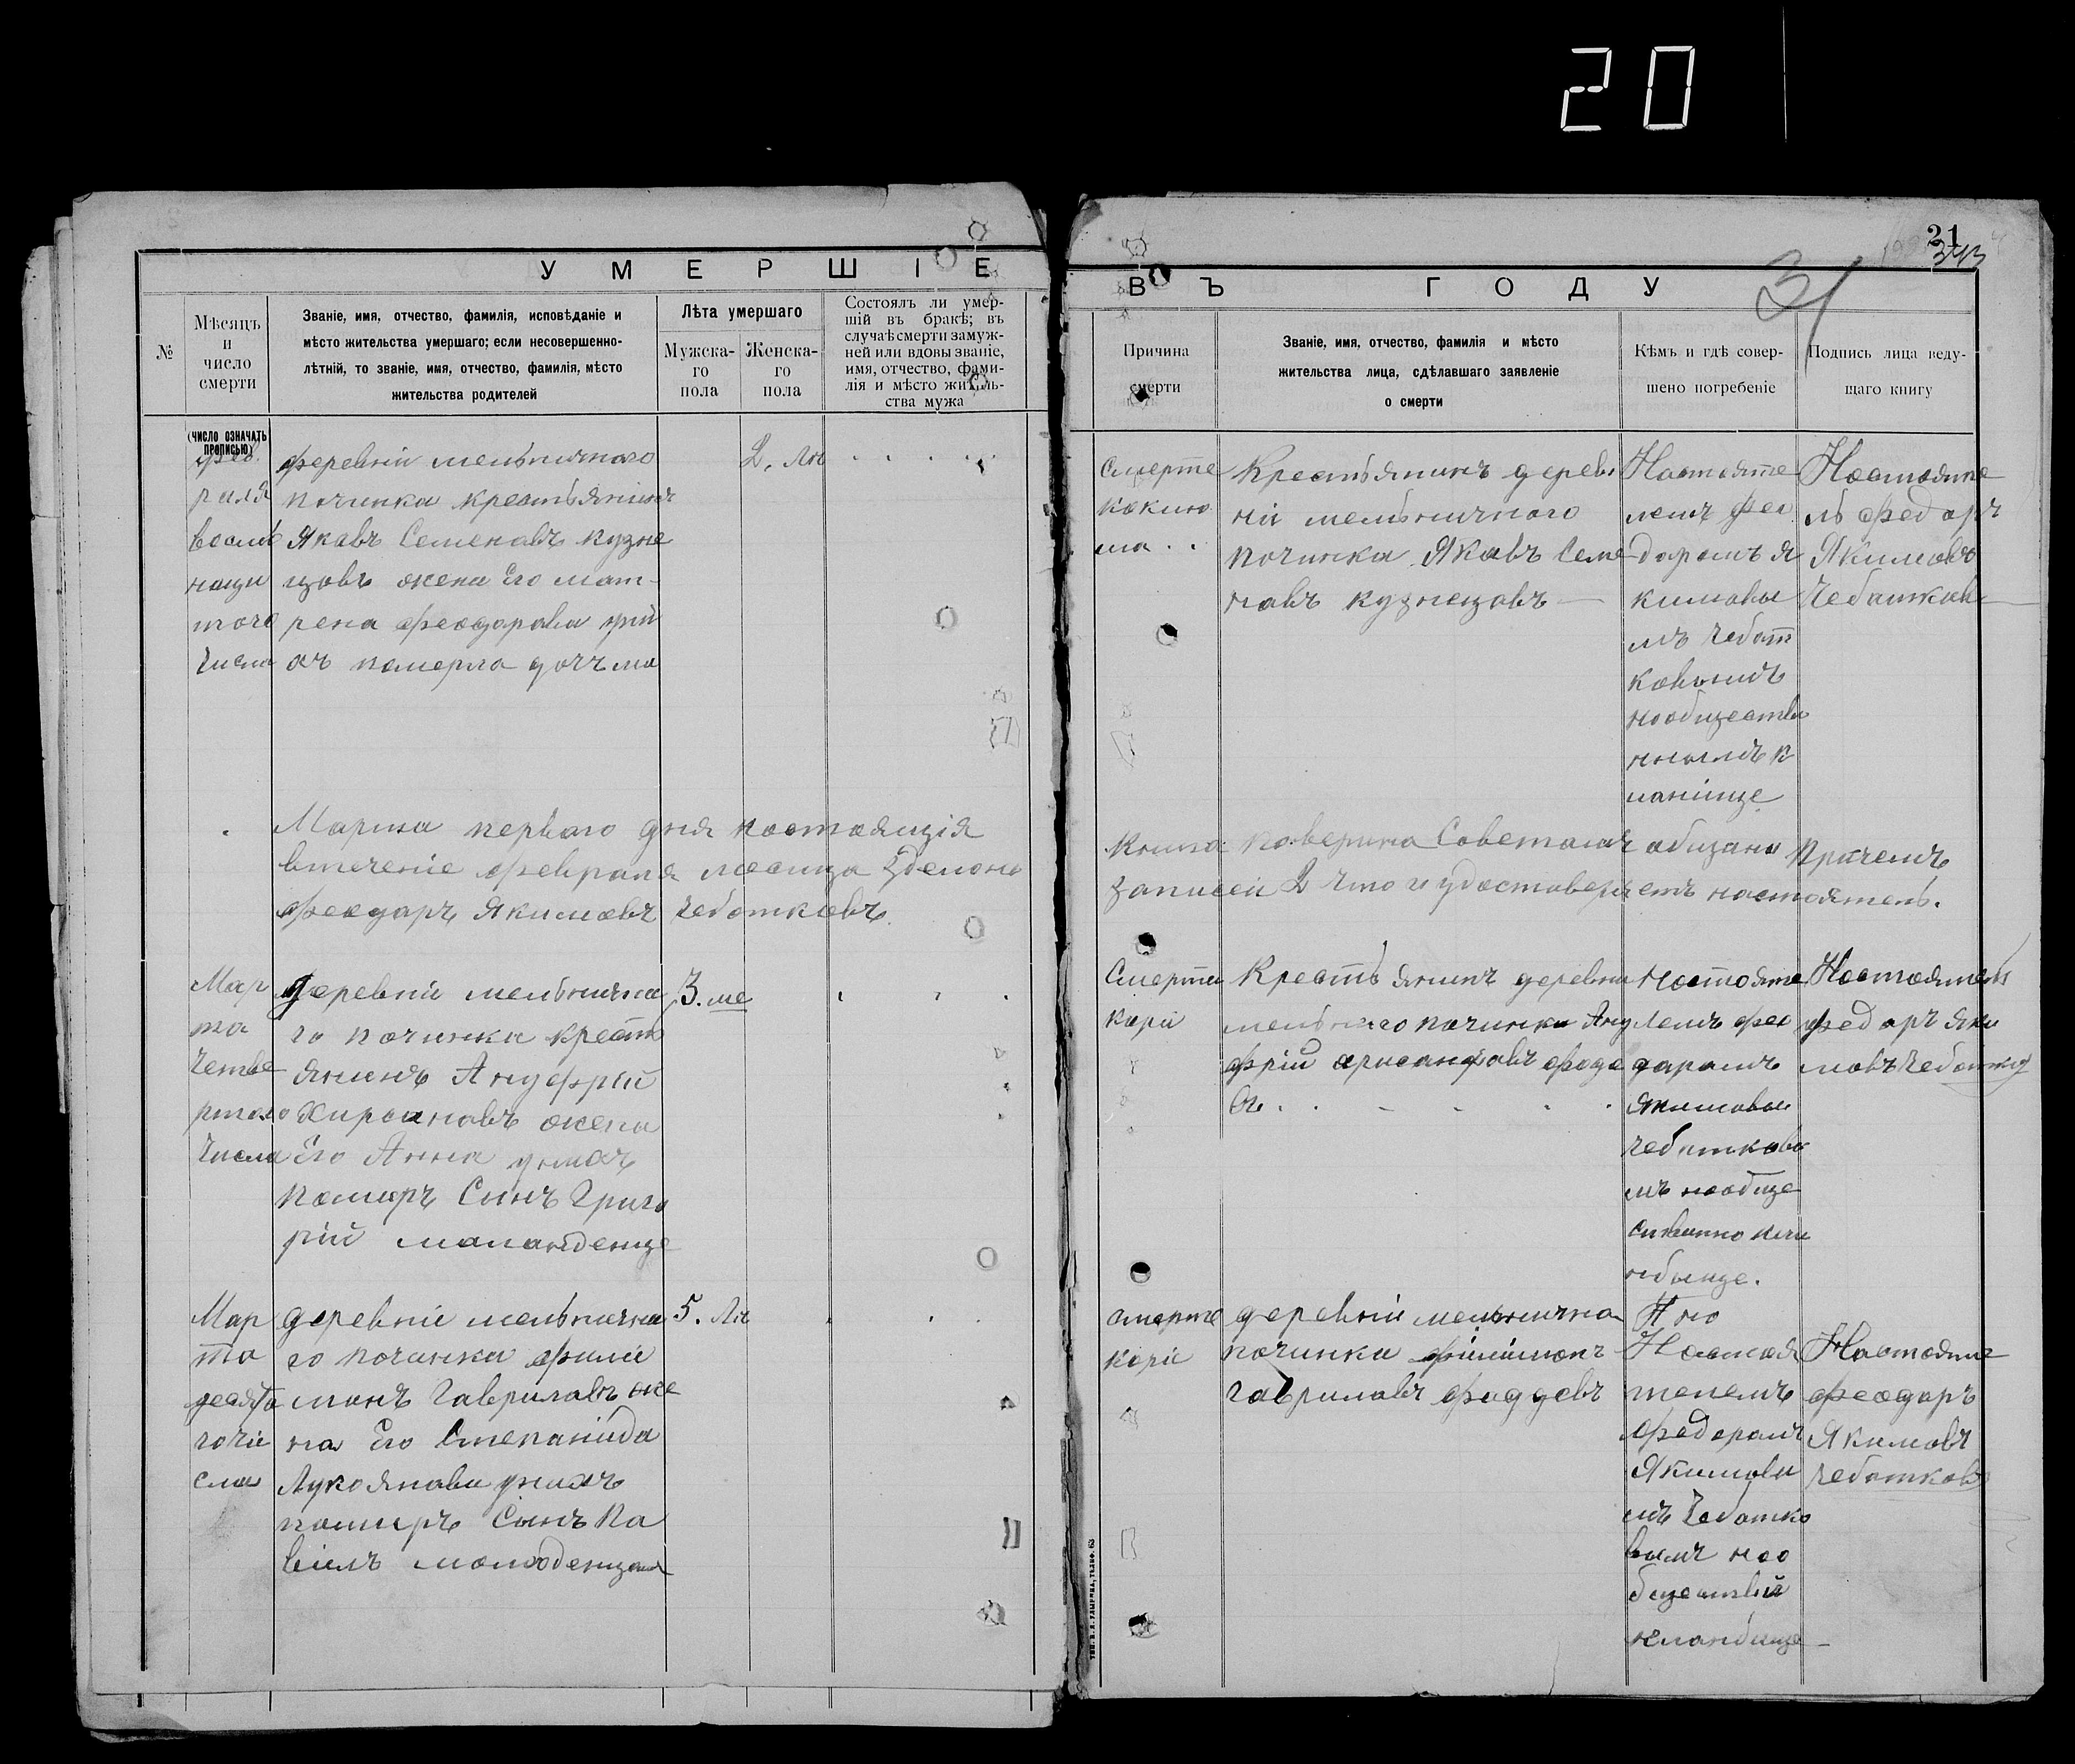 20
21
343
31
УМЕРШІЕ
ВЪ ГОДУ
№
Мѣсяцъ
и
число
смерти
Званіе, имя, отчество, фамилія, исповѣданіе и
мѣсто жительства умершаго; если несовершенно-
лѣтній, то званіе, имя, отчество, фамилія, мѣсто
жительства родителей
Лѣта умершаго
Мужска-
го
пола
Женска-
го
пола
Состоялъ ли умер-
шій въ бракѣ; въ
случаѣ смерти замуж-
ней или вдовы званіе,
имя, отчество, фами-
лія и мѣсто житель-
ства мужа
Причина
смерти
Званіе, имя, отчество, фамилія и мѣсто
жительства лица, сдѣлавшаго заявленіе
о смерти
Кѣмъ и гдѣ совер-
шено погребеніе
Подпись лица веду-
щаго книгу
(число означать
прописью)
фев
раля
восем
наци
того
Числа
деревніи мельничнаго
починка крестьянинъ
Яковъ Семеновъ кузне
цовъ жена Его мат-
рена феодорова
ахъ померла дочь
2. Лѣ
Смерте
Крестьянинъ дерев
ніи мельничного
починка Яковъ Семе
новъ кузнецовъ
Настояте
лемъ фео
даромъ я
кимовы
мъ Чебот
ковымъ
нообществе
нномъ к
Настояте
ль федоръ
Якимовъ
Чеботков
Марта первого дня настоящія
втечение февраля месица зделоно
феодоръ Якимовъ Чеботковъ.
Книга поверина Советомъ обизано Причемъ
записей 2 что и удостоверяетъ настоятель.
Мар
та
Четве
ртого
Числа
деревніи мельнична
го починка крест
янинъ Ануфрій
Хирсановъ жена
Его Анна унихъ
помиръ Сынъ Григо
рій
3. ме
Смерти
кори
Крестьянинъ деревни
починки Ану
фрій
Настояте
лемъ фео
даромъ
якимовы
чеботковы
мъ нообще
Настоятель
федоръ яки
мовъ Чеботко
Мар
та
десято
го чи
сла
деревніи мельнична
го починки фили
монъ Гавриловъ же
на Его Степанида
Лукоянова унихъ
помиръ Сынъ Па
вилъ
5. Лѣ
смерте
кори
деревніи мельнична
починки филимонъ
гавриловъ фаддевъ
Настоя
телемъ
Федоромъ
Якимовы
мъ Чеботко
вымъ ноо
бществий
Настояте
феодоръ
Якимовъ
Чеботковъ